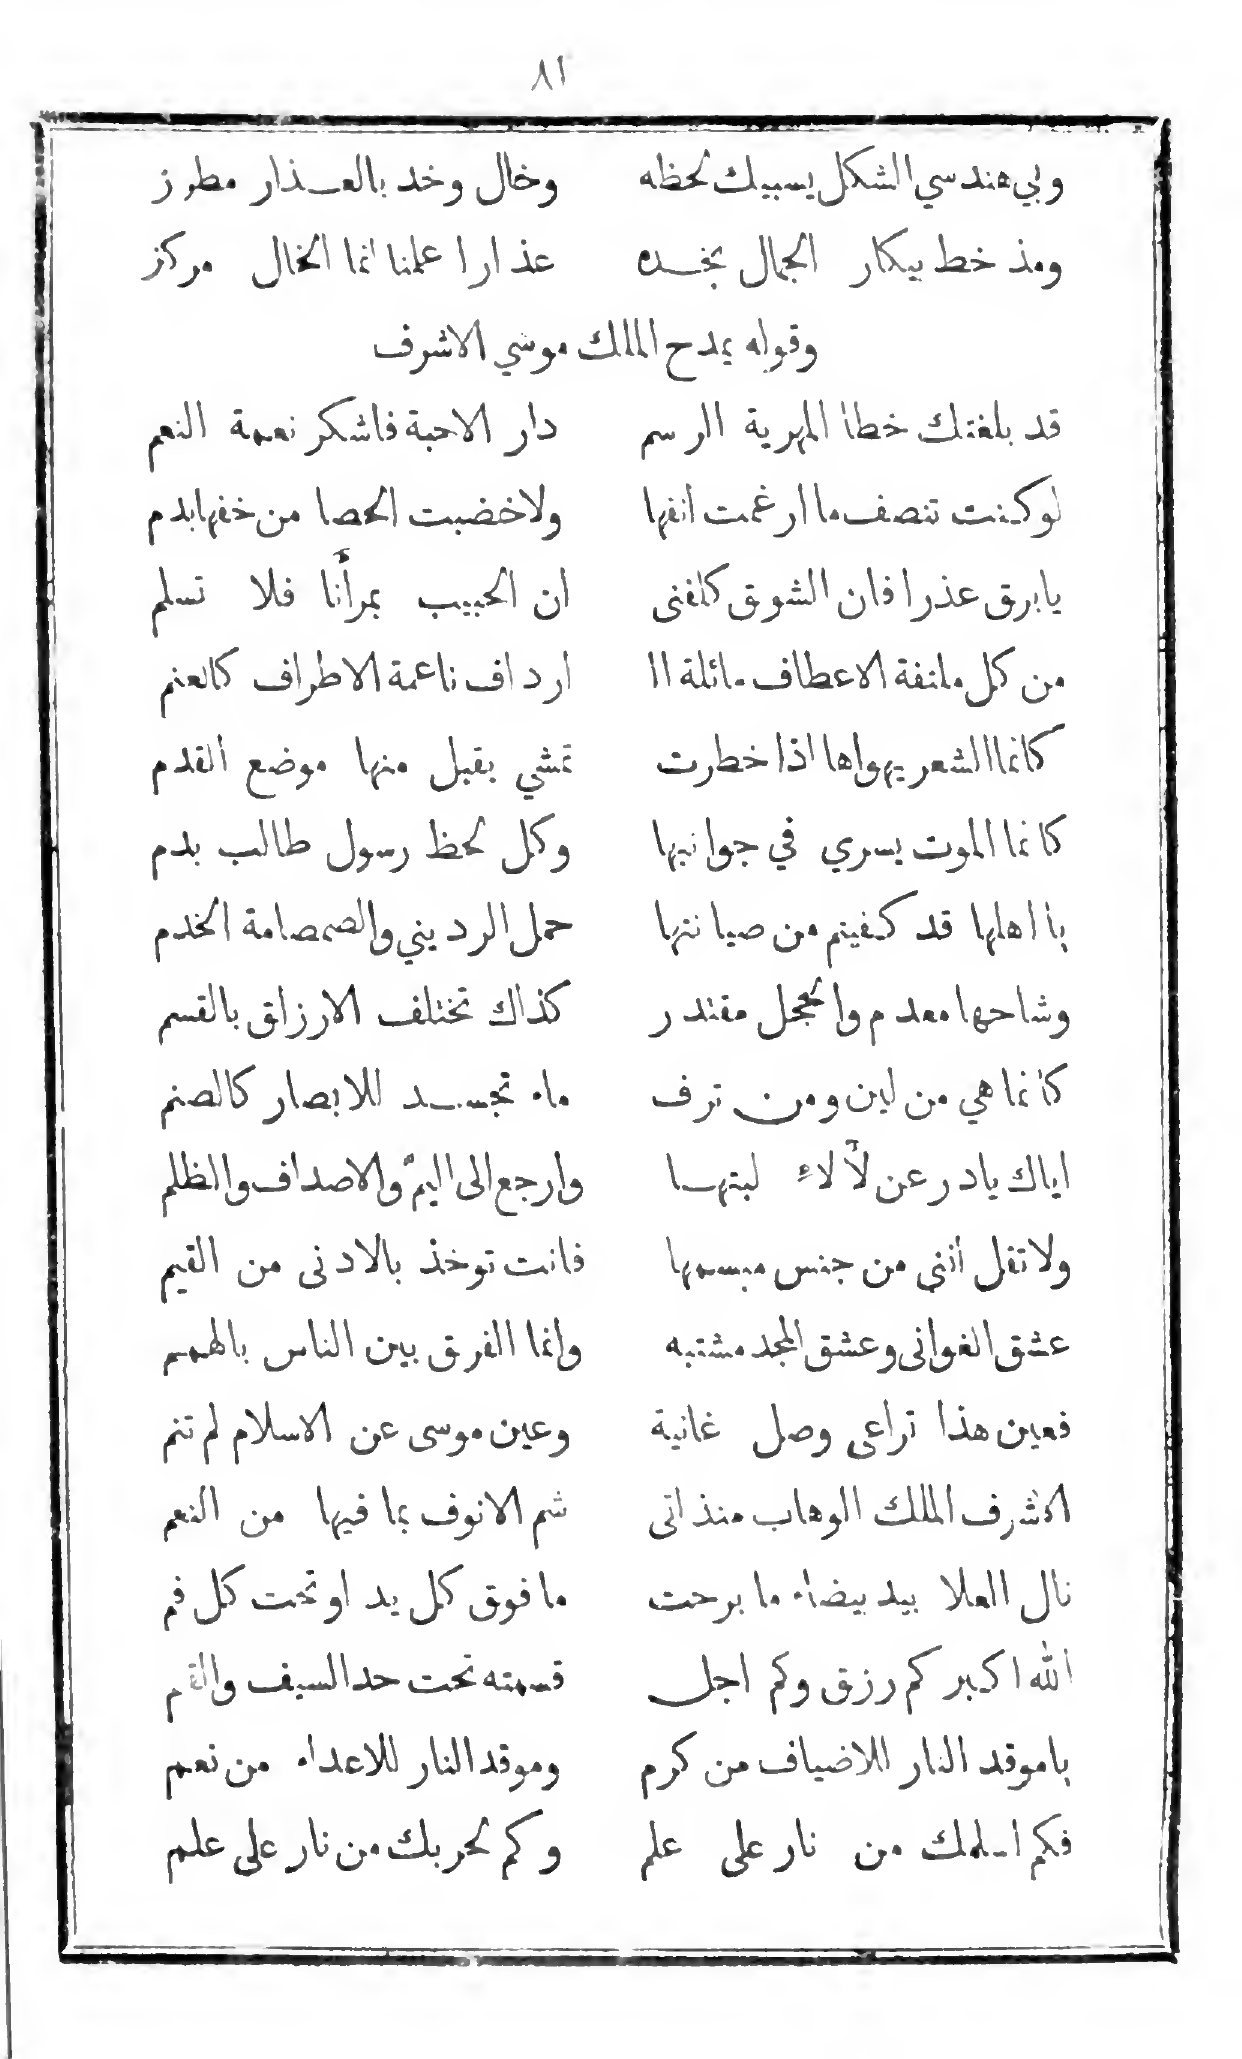 ٨١
وبي هندسي الشكل يسبيك لحظه وخال وخد بالعـذار مطرز
ومذ خط بيكار الجمال بخـده عذارا علمنا انما الخال مركز
وقوله يمدح الملك موسي الاشرف
قد بلغتك خطا المهرية الرسم دار الاحبة فاشكر نعمة النعم
لوكنت تنصف ما ارغمت انفها ولاخضبت الحصا من خفها بدم
يابرق عذرا فان الشوق كلفنى ان الحبيب بمرأنا فلا تسلم
من كل ملتفة الاعطاف مائلة ال ارداف ناعمة الاطراف كالعنم
كانما الشعر يهواها اذا خطرت تمشي يقبل منها موضع القدم
كانما الموت يسري في جوانبها وكل لحظ رسول طالب بدم
يا اهلها قد كفيتم من صيانتها حمل الرديني والصمصامة الخدم
وشاحها معدم والحجل مقتدر كذاك تختلف الارزاق بالقسم
كانما هي من لين ومن ترف ماء تجسـد للابصار كالصنم
اياك يا در عن لألاء لبتهـا وارجع الى اليم والاصداف والظلم
ولا تقل انني من جنس مبسمها فانت توخذ بالادنى من القيم
عشق الغوانى وعشق المجد مشتبه وانما الفرق بين الناس بالهمم
فعين هذا تراعى وصل غانية وعين موسى عن الاسلام لم تنم
الاشرف الملك الوهاب منذ اتى شم الانوف بما فيها من النعم
نال العلا بيد بيضاء ما برحت ما فوق كل يد او تحت كل فم
الله اكبر كم رزق وكم اجل قسمته تحت حد السيف والقلم
ياموقد النار للاضياف من كرم وموقد النار للاعداء من نعم
فكم لسلمك من نار على علم وكم لحربك من نار على علم